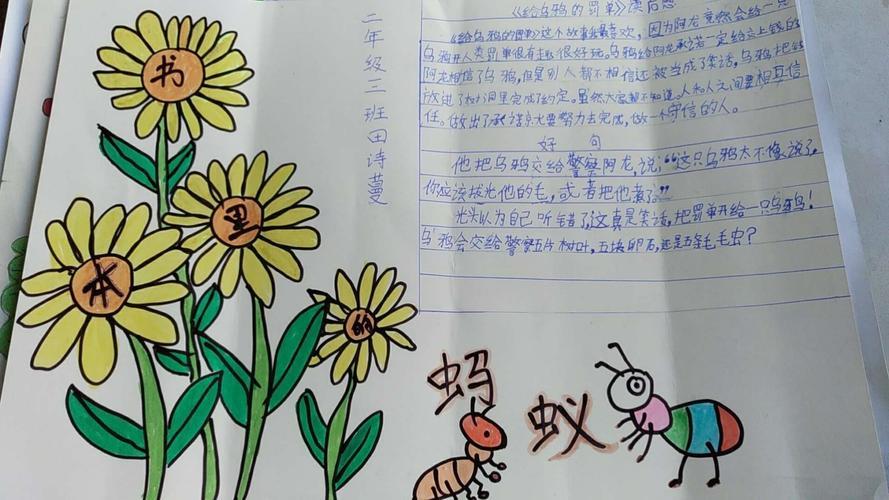 书
本
里
的
二年级二班田诗蔓
《给乌鸦的罚单》读后感
《给乌鸦的罚单》这个故事我最喜欢，因为阿龙竟然会给一只
乌鸦开人类罚单很有趣很好玩。乌鸦给阿龙承诺一定给交上钱的
阿龙相信了乌鸦，但是别人都不相信还被当成了笑话，乌鸦把钱
放进了树洞里完成了约定。虽然大家都不知道。人和人之间要相互信
任。做出了承诺就要努力去完成，做一个守信的人。
好 句
他把乌鸦交给警察阿龙，说："这只乌鸦太不像说了，
你应该拔光他的毛，或者把他煮了"
光头以为自己听错了，这真是笑话，把罚单开给一只乌鸦！
乌鸦会交给警察五片树叶，五块卵石，还是五条毛毛虫？
蚂
蚁